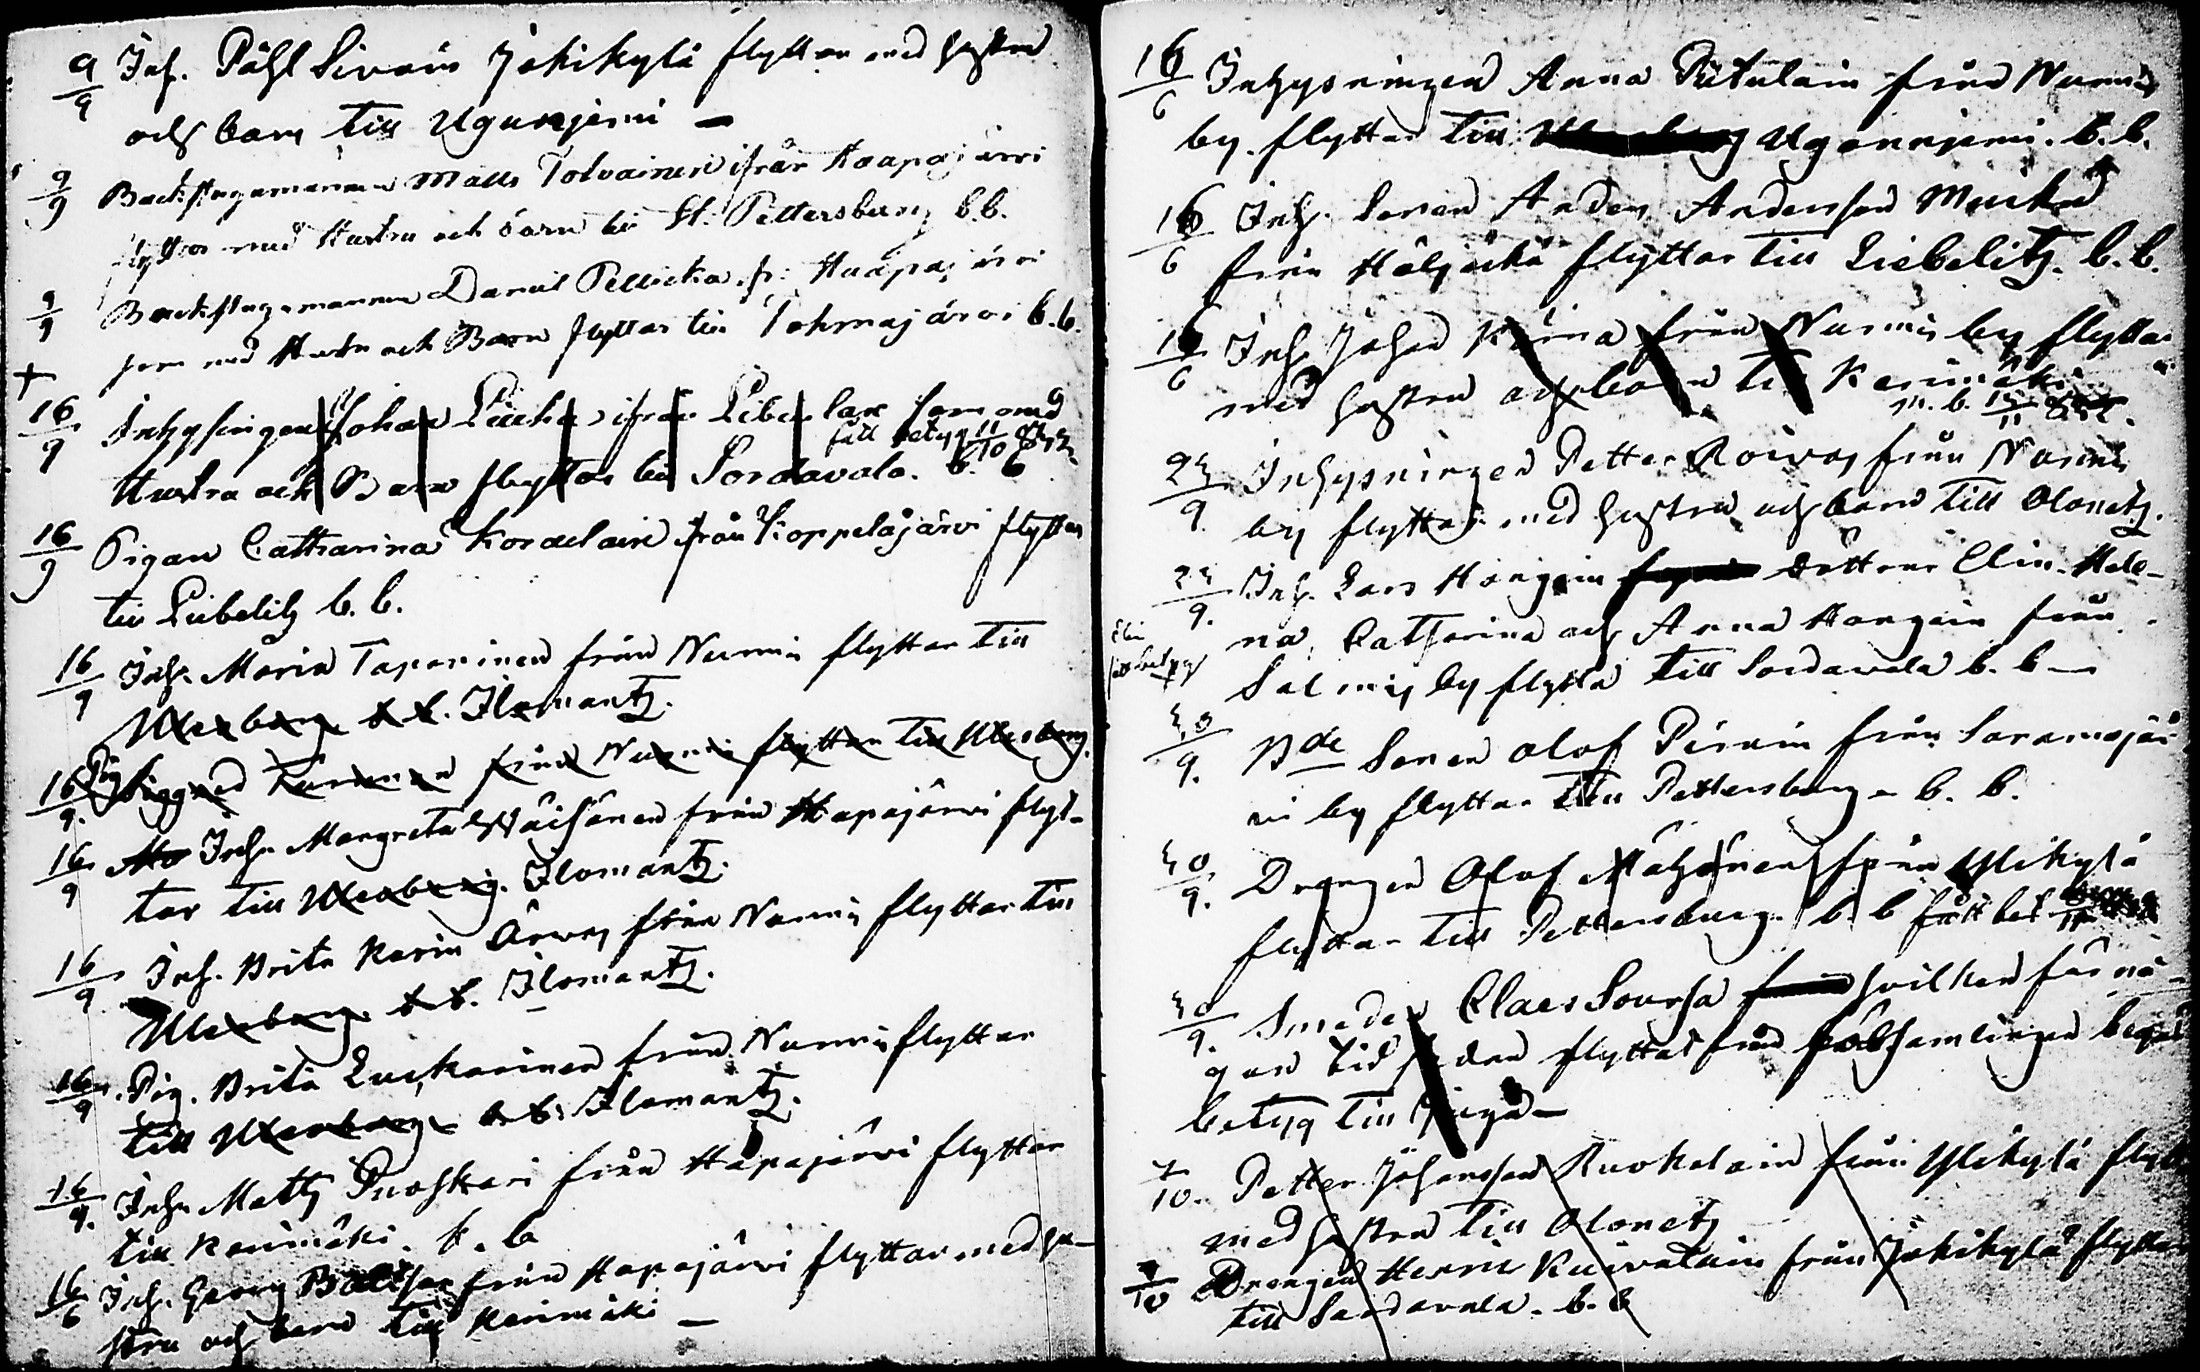 9/9 Inh. Påhl Sivoin Jokikylä flyttar med hustru
och barn till Ugunjemi —
9/9 Backstugamannen Matts Tolvainen ifrån Haapajärvi
flyttar med Hustru och barn till St. Pettersburg b.b.
9/9 Backstugamannen Daniel Pellicka fr. Haapajärvi
som med Hustru och Barn flyttar till Tohmajärvi b.b.
+
16/9 Inhysingen Johan ifrån som med
fått betyg 11/10
Hustru och Barn flyttar till Sordavala. b. b
16/9 Pigan Catharina Korelain från Koppelojärvi flyttar
till Liebelitz b.b.
16/9 Inh. Maria Taparinen från Nurmis flyttar till
Uleaborg b.b. Ilomantz.
16/9. Pig från Nurmis flyttar till Uleaborg.
16/9 Inh. Margreta Wäisänen från Hapajärvi flyt-
tar till Uleaborg. Ilomantz.
16/9. Inh. Brita Karin från Nurmis flyttar till
Uleaborg b.b. Ilomantz.
16/9. Pig. Brita Luckarinen från Nurmis flyttar
till Uleaborg b.b. Ilomantz.
16/9. Inh. Matts Puoskari från Hapajärvi flyttar
till Kerimäki. b. b
16/6 Inh. Georg från Hapajärvi flyttar med hu-
stru och barn till Kerimäki —
16/6 Inhysningen Anna Pitulain från Nurmis
by flyttar till Ugonnjemi. b.b.
16/6 Inh. Sonen Anders Andersson
från Höljäckä flyttar till Liebelitz. b.b.
16/6 Inh. Johan från Nurmis by flyttar
med hustru och barn till Kerimäki
n. b. 15/11
24/9 Inhysningen Petter Roivas från Nurmis
by flyttar med hustru och barn till Olonetz.
24/9. Inh. Lars döttrar Elin, Hele-
na, Catharina och Anna från
Elin
fått betyg
Salmis by flytta till Sordavala b. b —
30/9. Bde Sonen Olof Pirain från Saramojär
vi by flyttar till Pettersburg — b. b.
30/9. Drengen Olof från Ylikylä
flyttar till Pettersburg. b. b fått bet
30/9. Smeden Claes Soursa hvilken för nå-
gon tid sedan flyttat från församlingen begär
betyg till —
7/10. Petter Johansson Ruokolain från Ylikylä flytt
med hustru till Olonetz
9/10 Drengen Henric Kuivalain från Jokikylä flyttar
till Sordavala. b. b